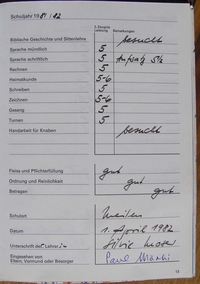 Schuljahr 1981 / 82
2. Zeugnis
Leistung Bemerkungen
Biblische Geschichte und Sittenlehre besucht
Sprache mündlich 5
Sprache schriftlich 5 Aufsatz 5½
Rechnen 5
Heimatkunde 5-6
Schreiben 5
Zeichnen 5-6
Gesang 5
Turnen 5
Handarbeit für Knaben besucht
Fleiss und Pflichterfüllung gut
Ordnung und Reinlichkeit gut
Betragen gut
Schulort
Datum 1. April 1982
Unterschrift des Lehrers
Eingesehen von
Eltern, Vormund oder Besorger Paul
13